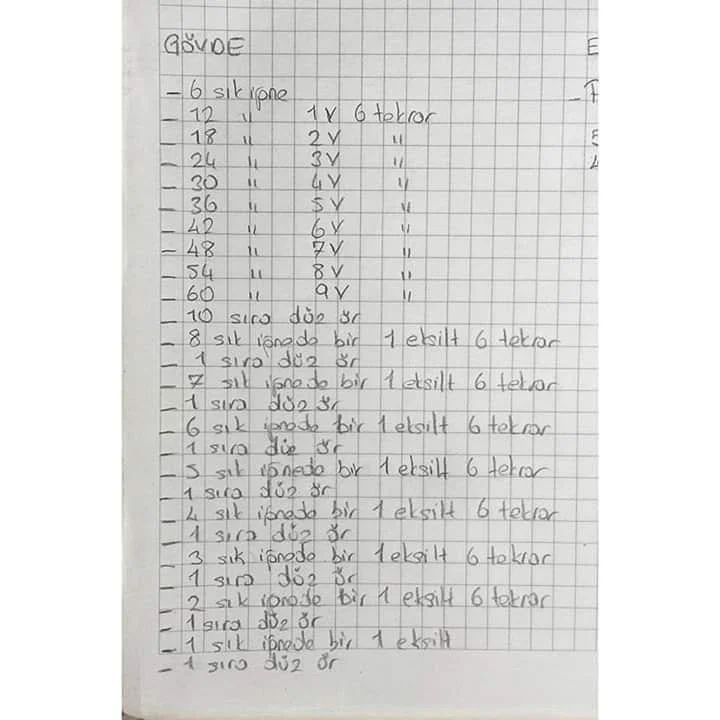 GÖVDE
E
- 6 sık iğne
- 12 " 1V 6 tekrar
- 18 " 2V "
- 24 " 3V "
- 30 " 4V "
- 36 " 5V "
- 42 " 6V "
- 48 " 7V "
- 54 " 8V "
- 60 " 9V "
- 10 sıra düz ör
- 8 sık iğnede bir 1 eksilt 6 tekrar
- 1 sıra düz ör
- 7 sık iğnede bir 1 eksilt 6 tekrar
- 1 sıra düz ör
- 6 sık iğnede bir 1 eksilt 6 tekrar
- 1 sıra düz ör
- 5 sık iğnede bir 1 eksilt 6 tekrar
- 1 sıra düz ör
- 4 sık iğnede bir 1 eksilt 6 tekrar
- 1 sıra düz ör
- 3 sık iğnede bir 1 eksilt 6 tekrar
- 1 sıra düz ör
- 2 sık iğnede bir 1 eksilt 6 tekrar
- 1 sıra düz ör
- 1 sık iğnede bir 1 eksilt
- 1 sıra düz ör